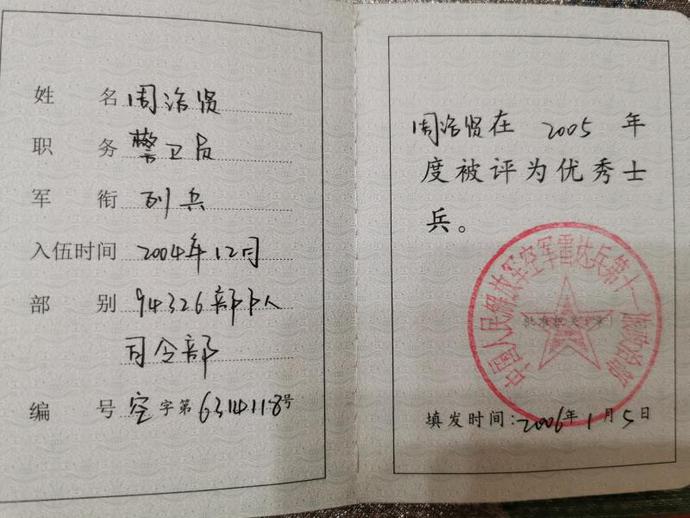 姓 名 周治贤
职 务 警卫员
军 衔 列兵
入伍时间 2004年12月
部 别 94326部队
司令部
编 号 空字第6314118号
周治贤在 2005 年
度被评为优秀士
兵。
中国人民解放军空军雷达兵第十一旅政治部
填发时间:2006年1月5日